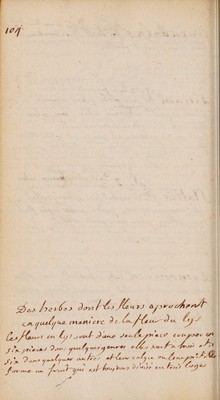 104
Des herbes dont les fleurs aprochent
en quelque maniere de la fleur du lys
les fleurs en lys sont d'une seule piece coupée en
six pieces dans quelques genres elles sont a trois et a
six dans quelques autres et leur calyce ou leur pistile
forme un fruit qui est toujours divisé en trois loges